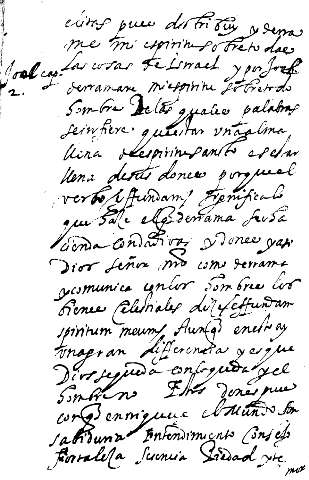 pues distribuiy y derra
me mi espiritu sobre todas
las cosas de Israel y por Joel
Joel cap.
2.
derramare mi espiritu sobre todo
hombre De las quales palabras
se infiere que estar un alma
llena de espiritu santo es estar
llena de sus dones porque el
verbo effundam significa lo
que haze el q derrama su ha
cienda con dadivas y dones y assi
Dios señor nro como derrama
y comunica con los hombres los
bienes celestiales dize effundam
spiritum meum Aunq en esto ay
una gran differencia y es que
Dios se queda con se queda y el
hombre no Estos dones pues
con q enriqueze el Mundo son
sabiduria Entendimiento Consejo
Fortaleza sciencia Piedad y te
mor